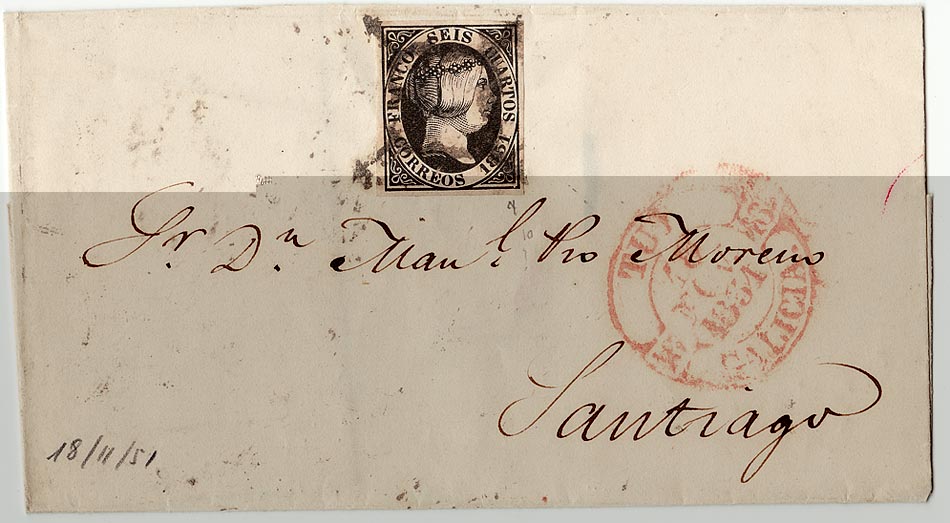 FRANCO SEIS CUARTOS
CORREOS 1851
Sr. Dn. Manl. Pio Moreno
TUY
1851
GALICIA
Santiago
18/11/51